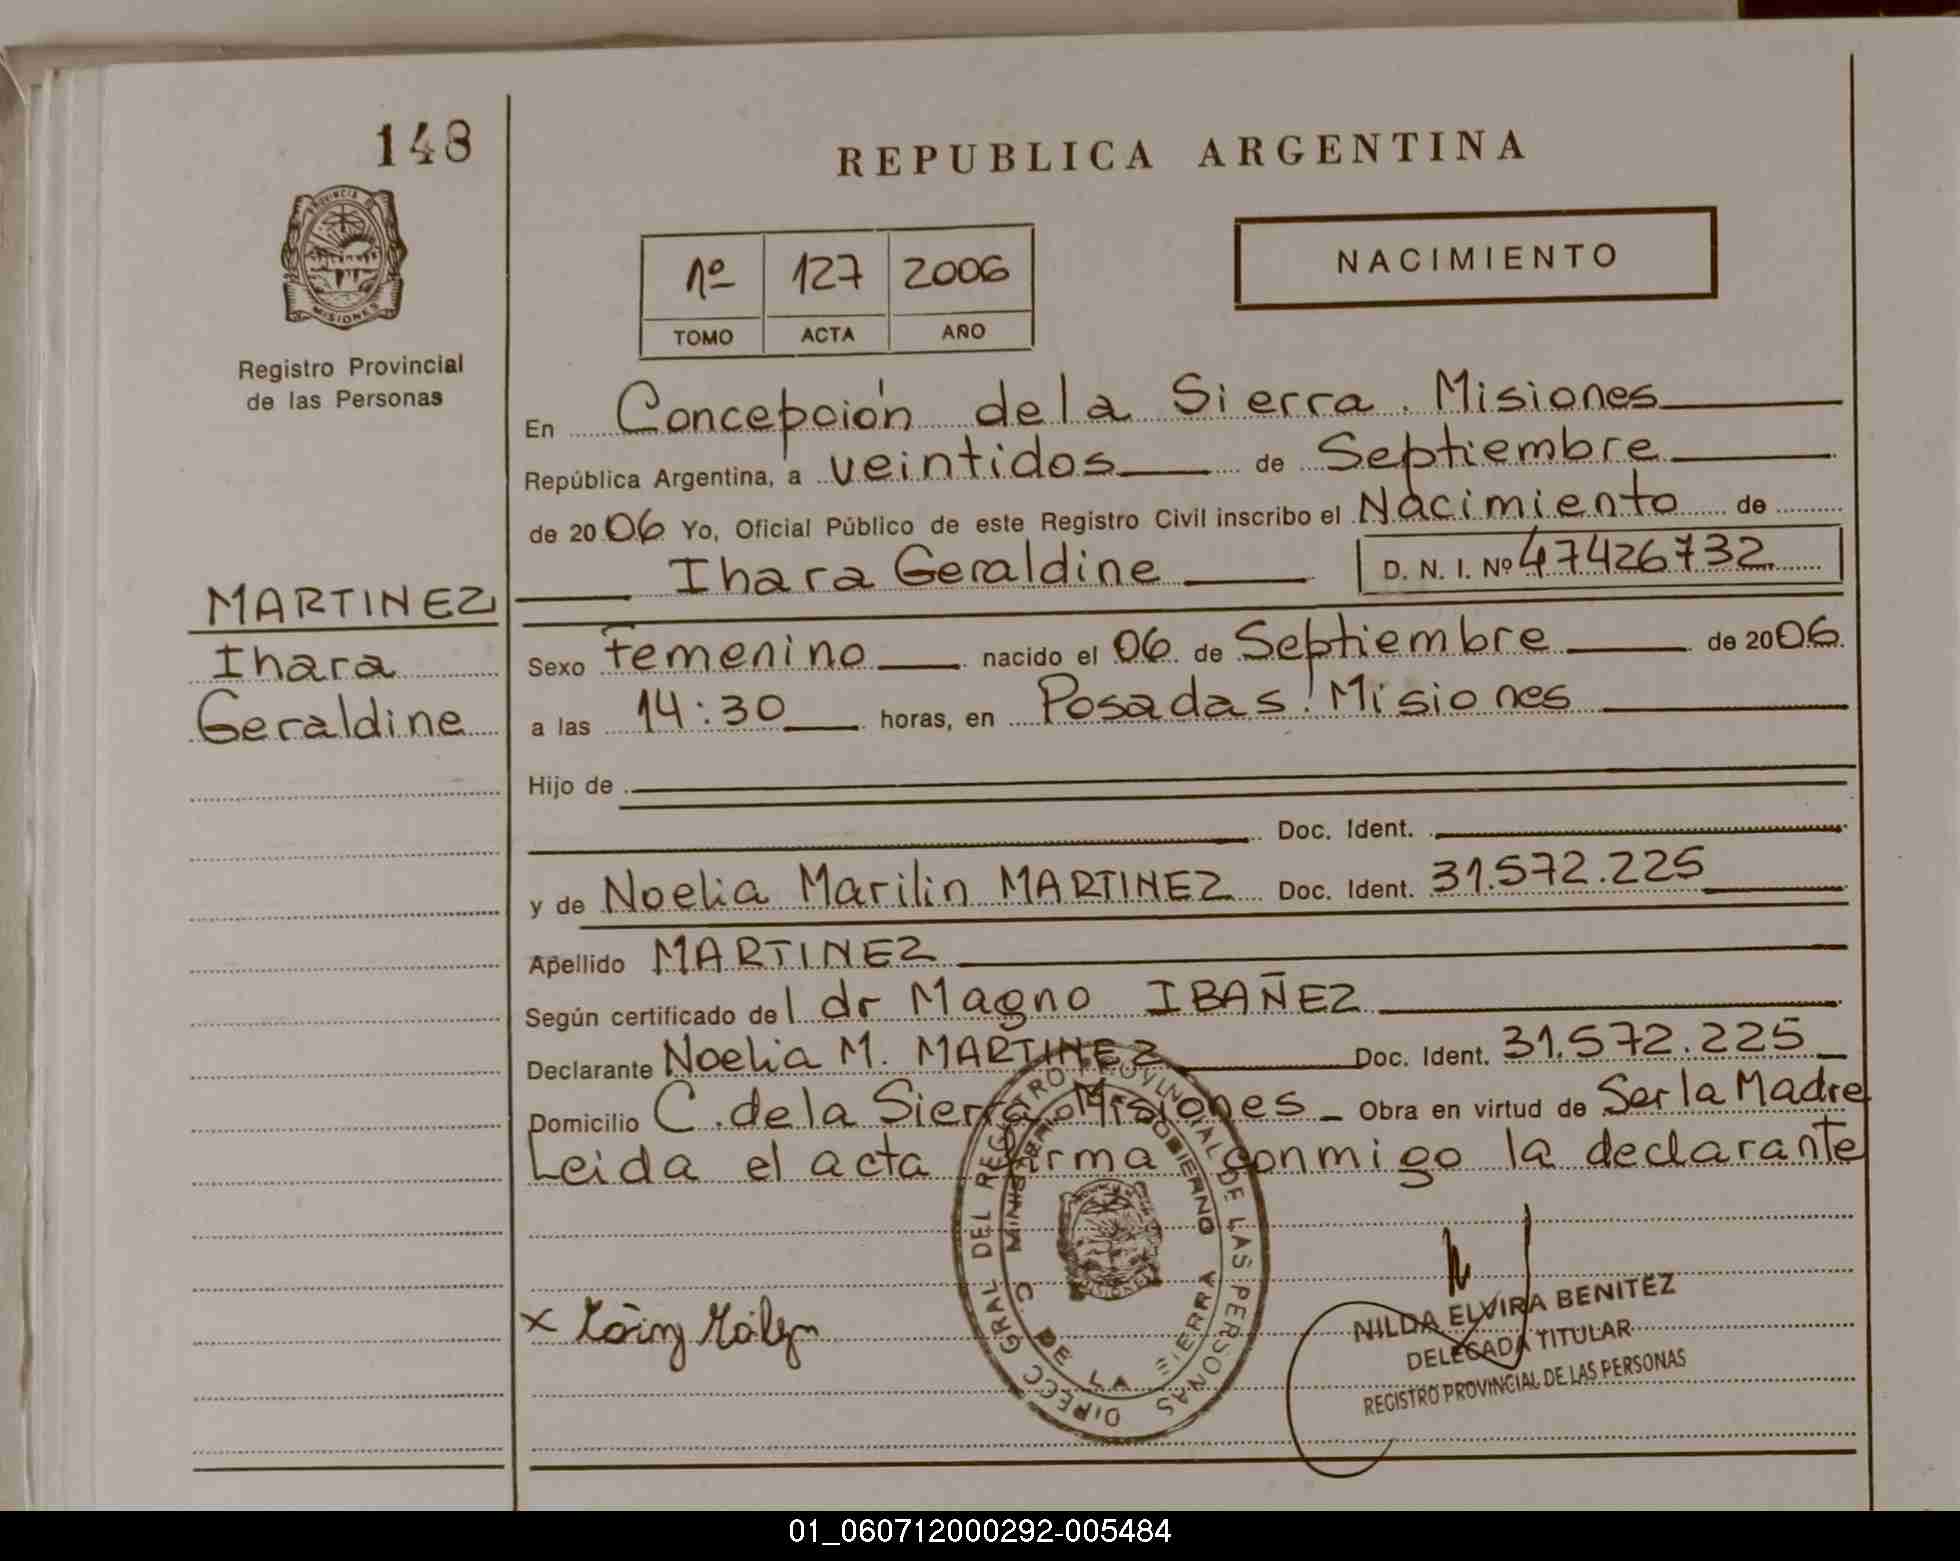 148
REPUBLICA ARGENTINA
PROVINCIA DE
MISIONES
Registro Provincial
de las Personas
1º 127 2006
TOMO ACTA AÑO
NACIMIENTO
En Concepción de la Sierra. Misiones
República Argentina, a veintidos de Septiembre
de 2006 Yo, Oficial Público de este Registro Civil inscribo el Nacimiento de
Ihara Geraldine D. N. I. Nº 47426732
MARTINEZ
Ihara
Geraldine
Sexo femenino nacido el 06 de Septiembre de 2006
a las 14:30 horas, en Posadas. Misiones
Hijo de
Doc. Ident.
y de Noelia Marilin MARTINEZ Doc. Ident. 31.572.225
Apellido MARTINEZ
Según certificado del dr Magno IBAÑEZ
Declarante Noelia M. MARTINEZ Doc. Ident. 31.572.225
Domicilio C. de la Sierra Misiones Obra en virtud de Ser la Madre
Leida el acta firma conmigo la declarante
DIRECC GRAL DEL REGISTRO PROVINCIAL DE LAS PERSONAS
MINISTERIO DE GOBIERNO
C. DE LA SIERRA
x
NILDA ELVIRA BENITEZ
DELEGADA TITULAR
REGISTRO PROVINCIAL DE LAS PERSONAS
01_060712000292-005484